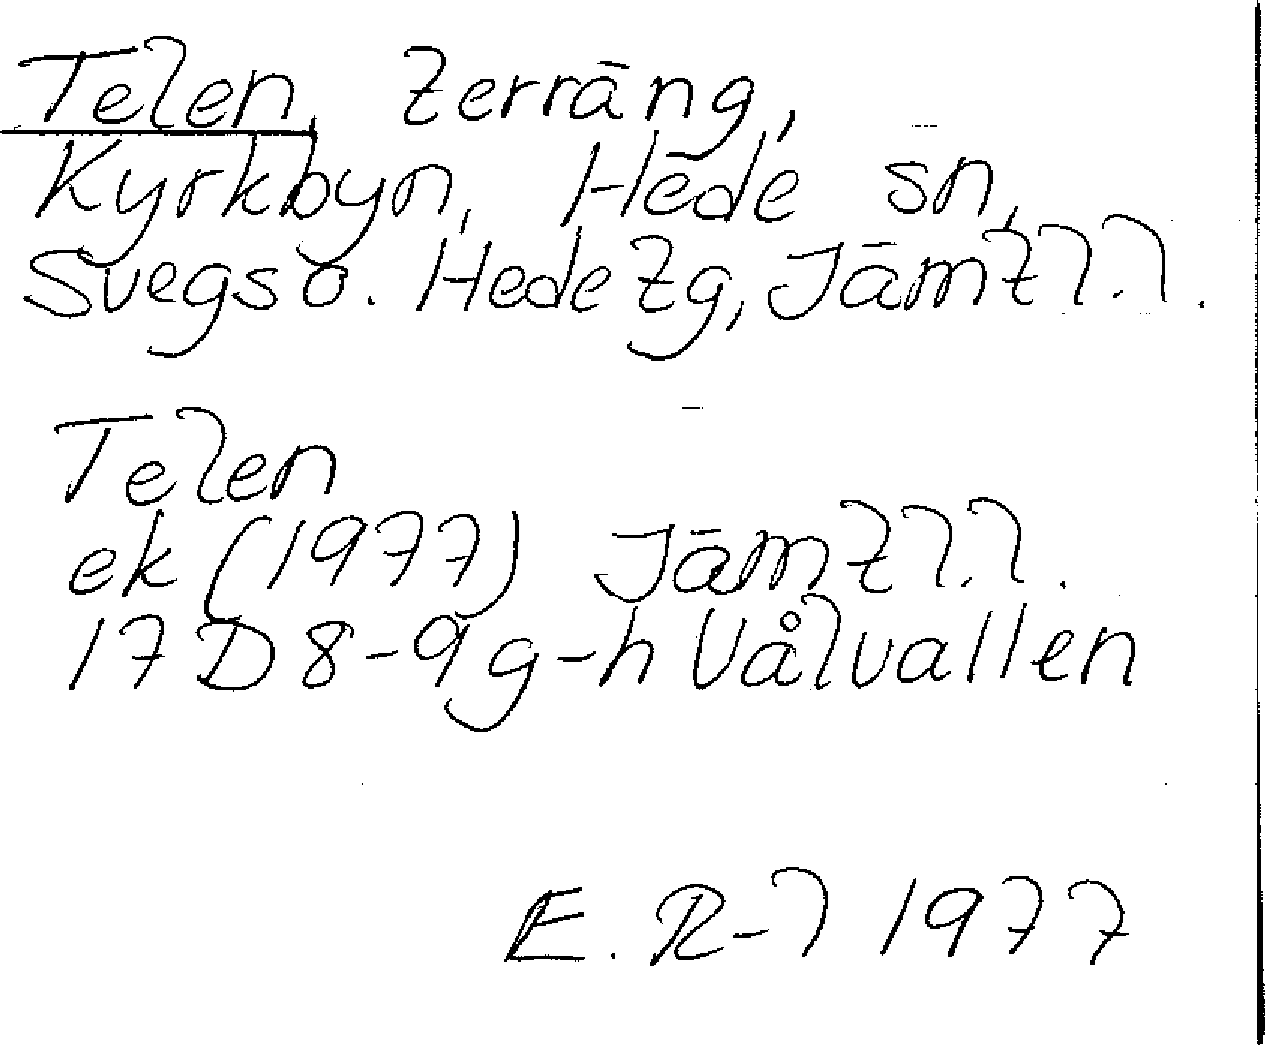 Telen, terräng,
Kyrkbyn, Hede sn,
Svegs o. Hede tg, Jämtl.l.
Telen
ek (1977) Jämtl.l.
17D 8-9 g-h Vålvallen
E. R-l 1977